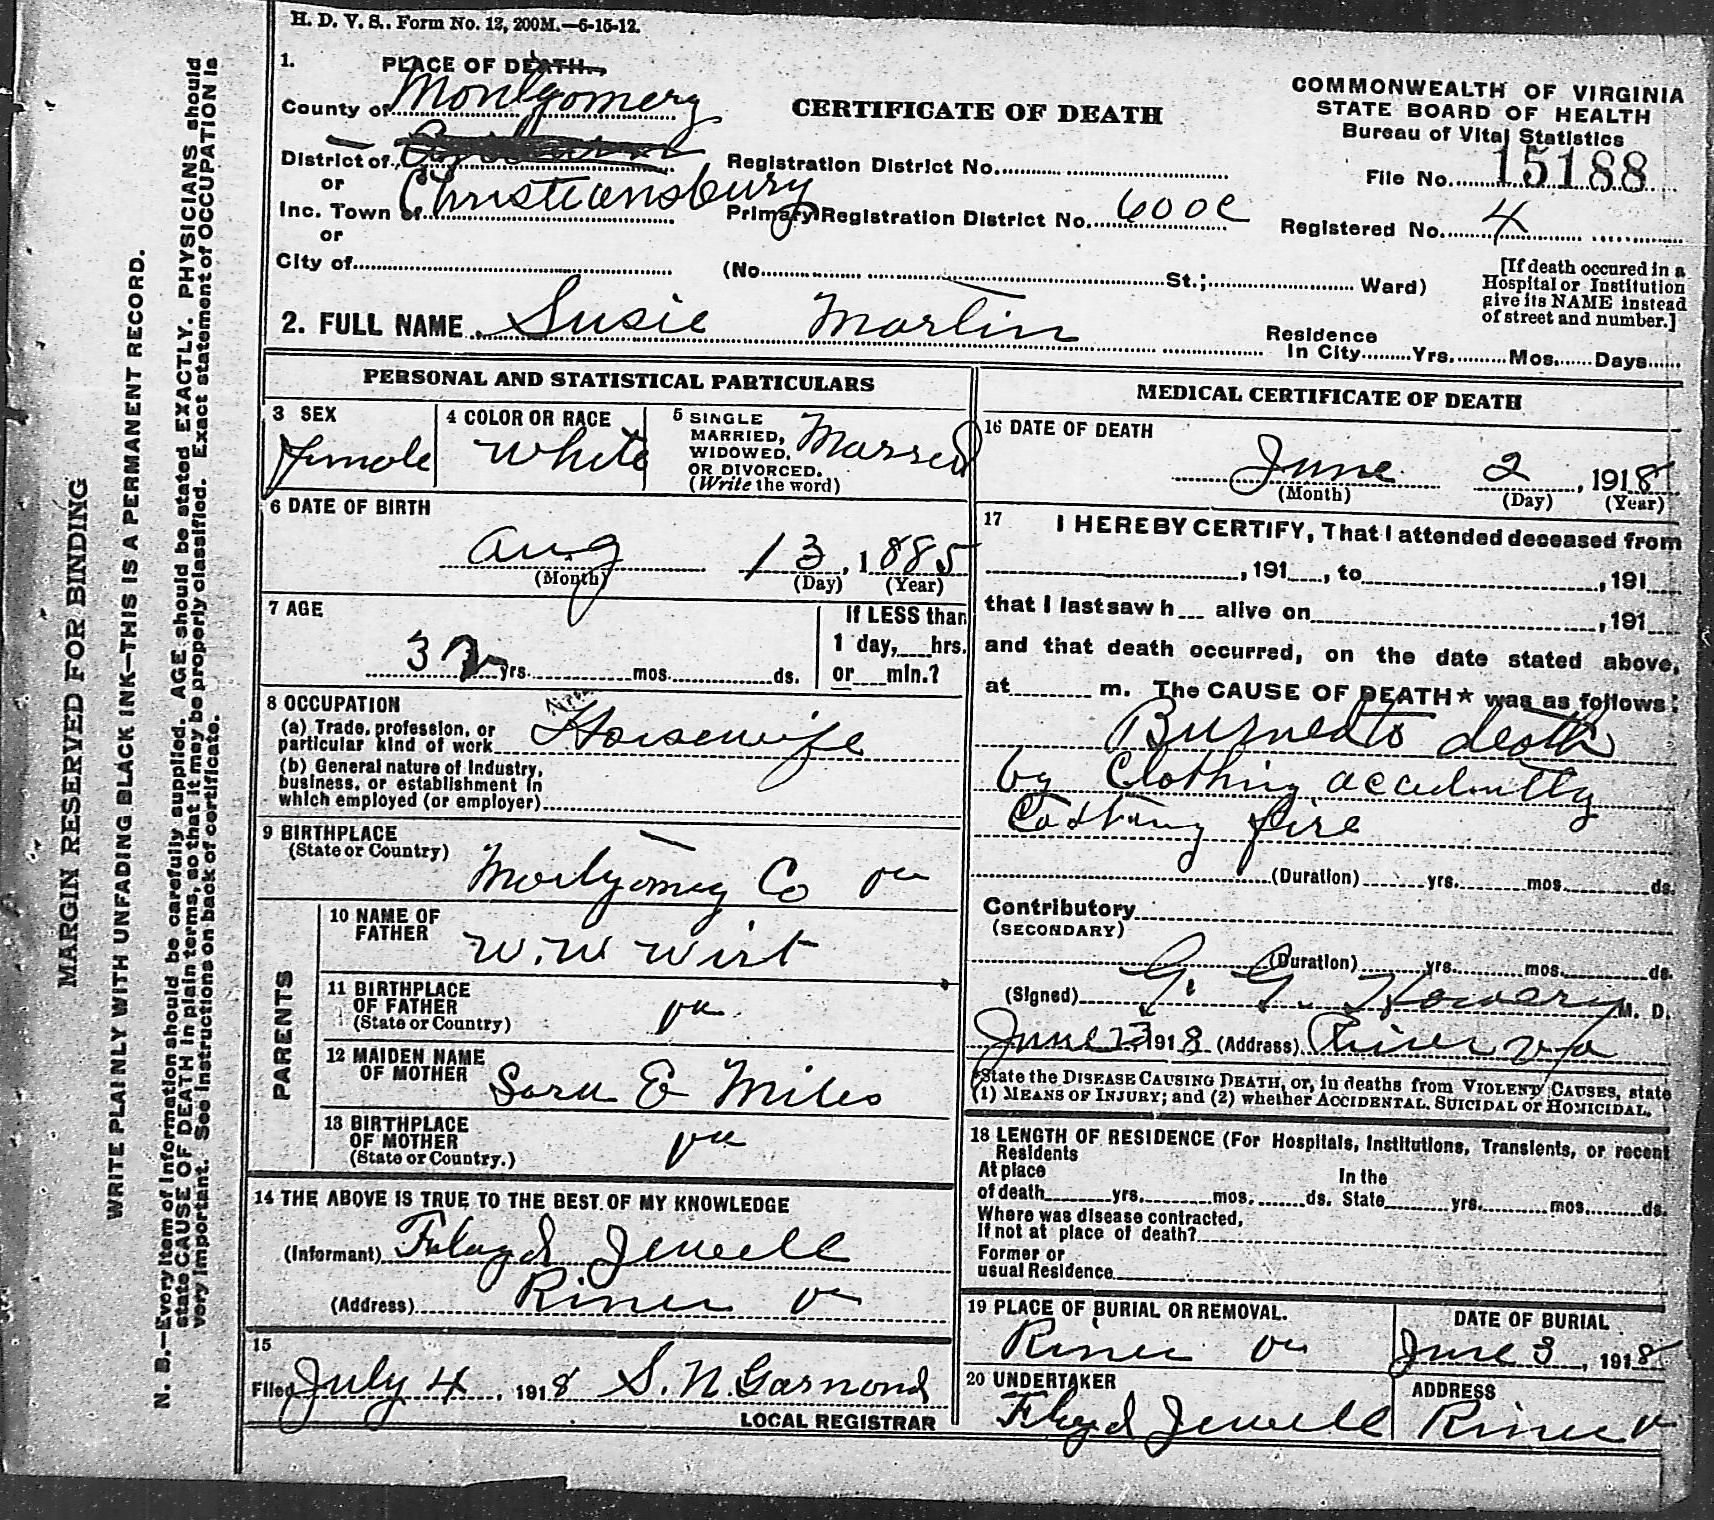 H. D. V. S.. Form No. 12, 200M.—6-15-12.
1. PLACE OF DEATH.
County of Montgomery
District of
or
Inc. Town of Christiansburg
or
City of
CERTIFICATE OF DEATH
Registration District No.
Primary Registration District No. 600C
(No. St.; Ward)
COMMONWEALTH OF VIRGINIA
STATE BOARD OF HEALTH
Bureau of Vital Statistics
File No. 15188
Registered No. 4
[If death occured in a
Hospital or Institution
give its NAME instead
of street and number.]
2. FULL NAME Susie Martin
Residence
In City Yrs. Mos. Days
PERSONAL AND STATISTICAL PARTICULARS
3 SEX
Female
4 COLOR OR RACE
White
5 SINGLE
MARRIED,
WIDOWED,
OR DIVORCED.
(Write the word)
Married
6 DATE OF BIRTH
Aug 13, 1885
(Month) (Day) (Year)
7 AGE
32 yrs. mos. ds.
If LESS than
1 day, hrs.
or min.?
8 OCCUPATION
(a) Trade, profession, or
particular kind of work Housewife
(b) General nature of Industry,
business, or establishment in
which employed (or employer)
9 BIRTHPLACE
(State or Country)
Montgomery Co Va
PARENTS
10 NAME OF
FATHER
W. W Wirt
11 BIRTHPLACE
OF FATHER
(State or Country)
Va
12 MAIDEN NAME
OF MOTHER
Sara E Miles
13 BIRTHPLACE
OF MOTHER
(State or Country.)
Va
14 THE ABOVE IS TRUE TO THE BEST OF MY KNOWLEDGE
(Informant) Floyd Jewell
(Address) Riner Va
15
Filed July 4, 1918 S. N. Garnond
LOCAL REGISTRAR
MEDICAL CERTIFICATE OF DEATH
16 DATE OF DEATH
June 2, 1918
(Month) (Day) (Year)
17 I HEREBY CERTIFY, That I attended deceased from
, 191 , to , 191
that I last saw h alive on , 191
and that death occurred, on the date stated above,
at m. The CAUSE OF DEATH* was as follows:
Burned to death
by Clothing accidently
Catching fire
(Duration) yrs. mos. ds.
Contributory
(SECONDARY)
(Duration) yrs. mos. ds.
(Signed) G. G. Howery M. D.
June 1918 (Address) Riner Va
*State the DISEASE CAUSING DEATH, or, in deaths from VIOLENT CAUSES, state
(1) MEANS OF INJURY; and (2) whether ACCIDENTAL, SUICIDAL or HOMICIDAL.
18 LENGTH OF RESIDENCE (For Hospitals, Institutions, Transients, or recent
Residents
At place In the
of death yrs. mos. ds. State yrs. mos. ds.
Where was disease contracted,
If not at place of death?
Former or
usual Residence
19 PLACE OF BURIAL OR REMOVAL.
Riner Va
DATE OF BURIAL
June 3, 1918
20 UNDERTAKER
Floyd Jewell
ADDRESS
Riner V
MARGIN RESERVED FOR BINDING
WRITE PLAINLY WITH UNFADING BLACK INK—THIS IS A PERMANENT RECORD.
N. B.—Every item of information should be carefully supplied. AGE should be stated EXACTLY. PHYSICIANS should
state CAUSE OF DEATH in plain terms, so that it may be properly classified. Exact statement of OCCUPATION is
very important. See instructions on back of certificate.